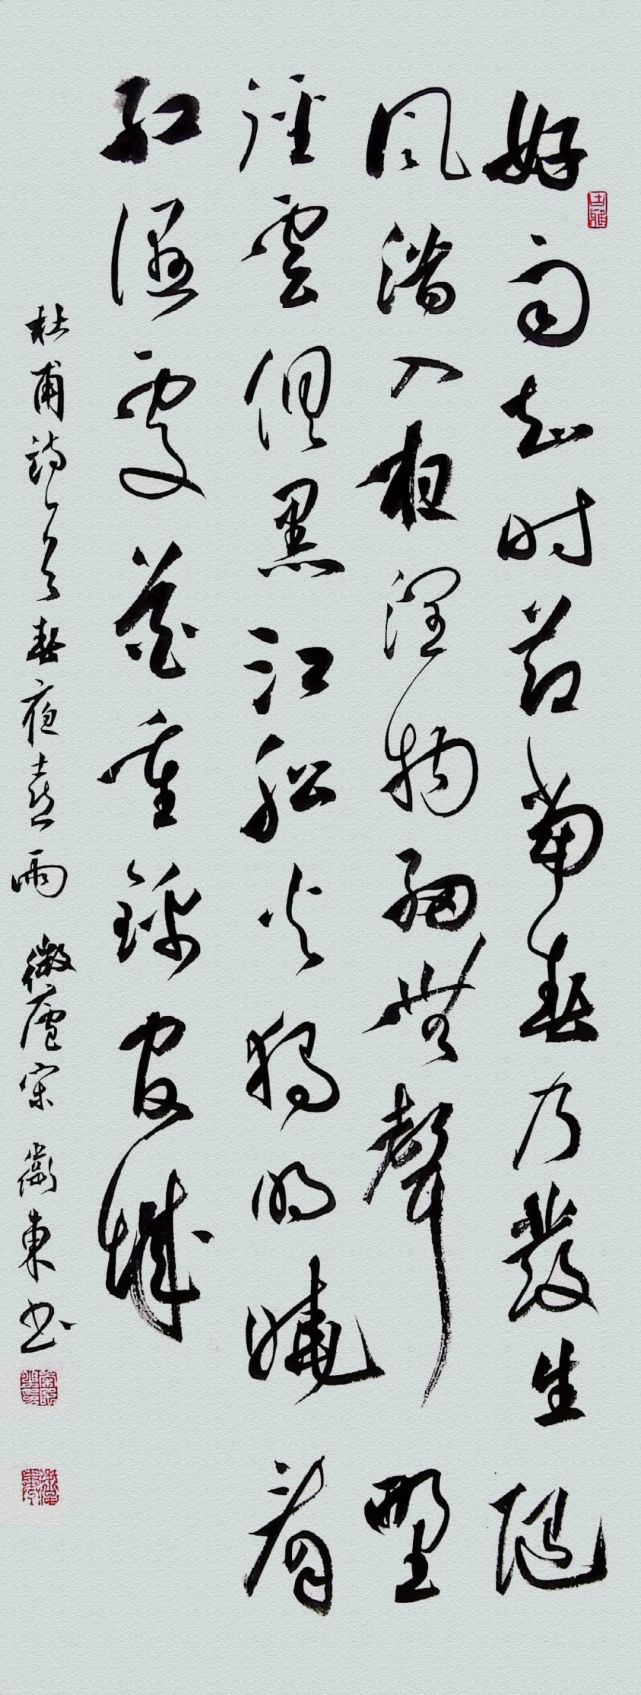 好雨知时节当春乃发生随
风潜入夜润物细无聲野
径雲俱黑江船火独明晓看
红湿处花重錦官城
杜甫詩一首春夜喜雨 微廬宋衛東书